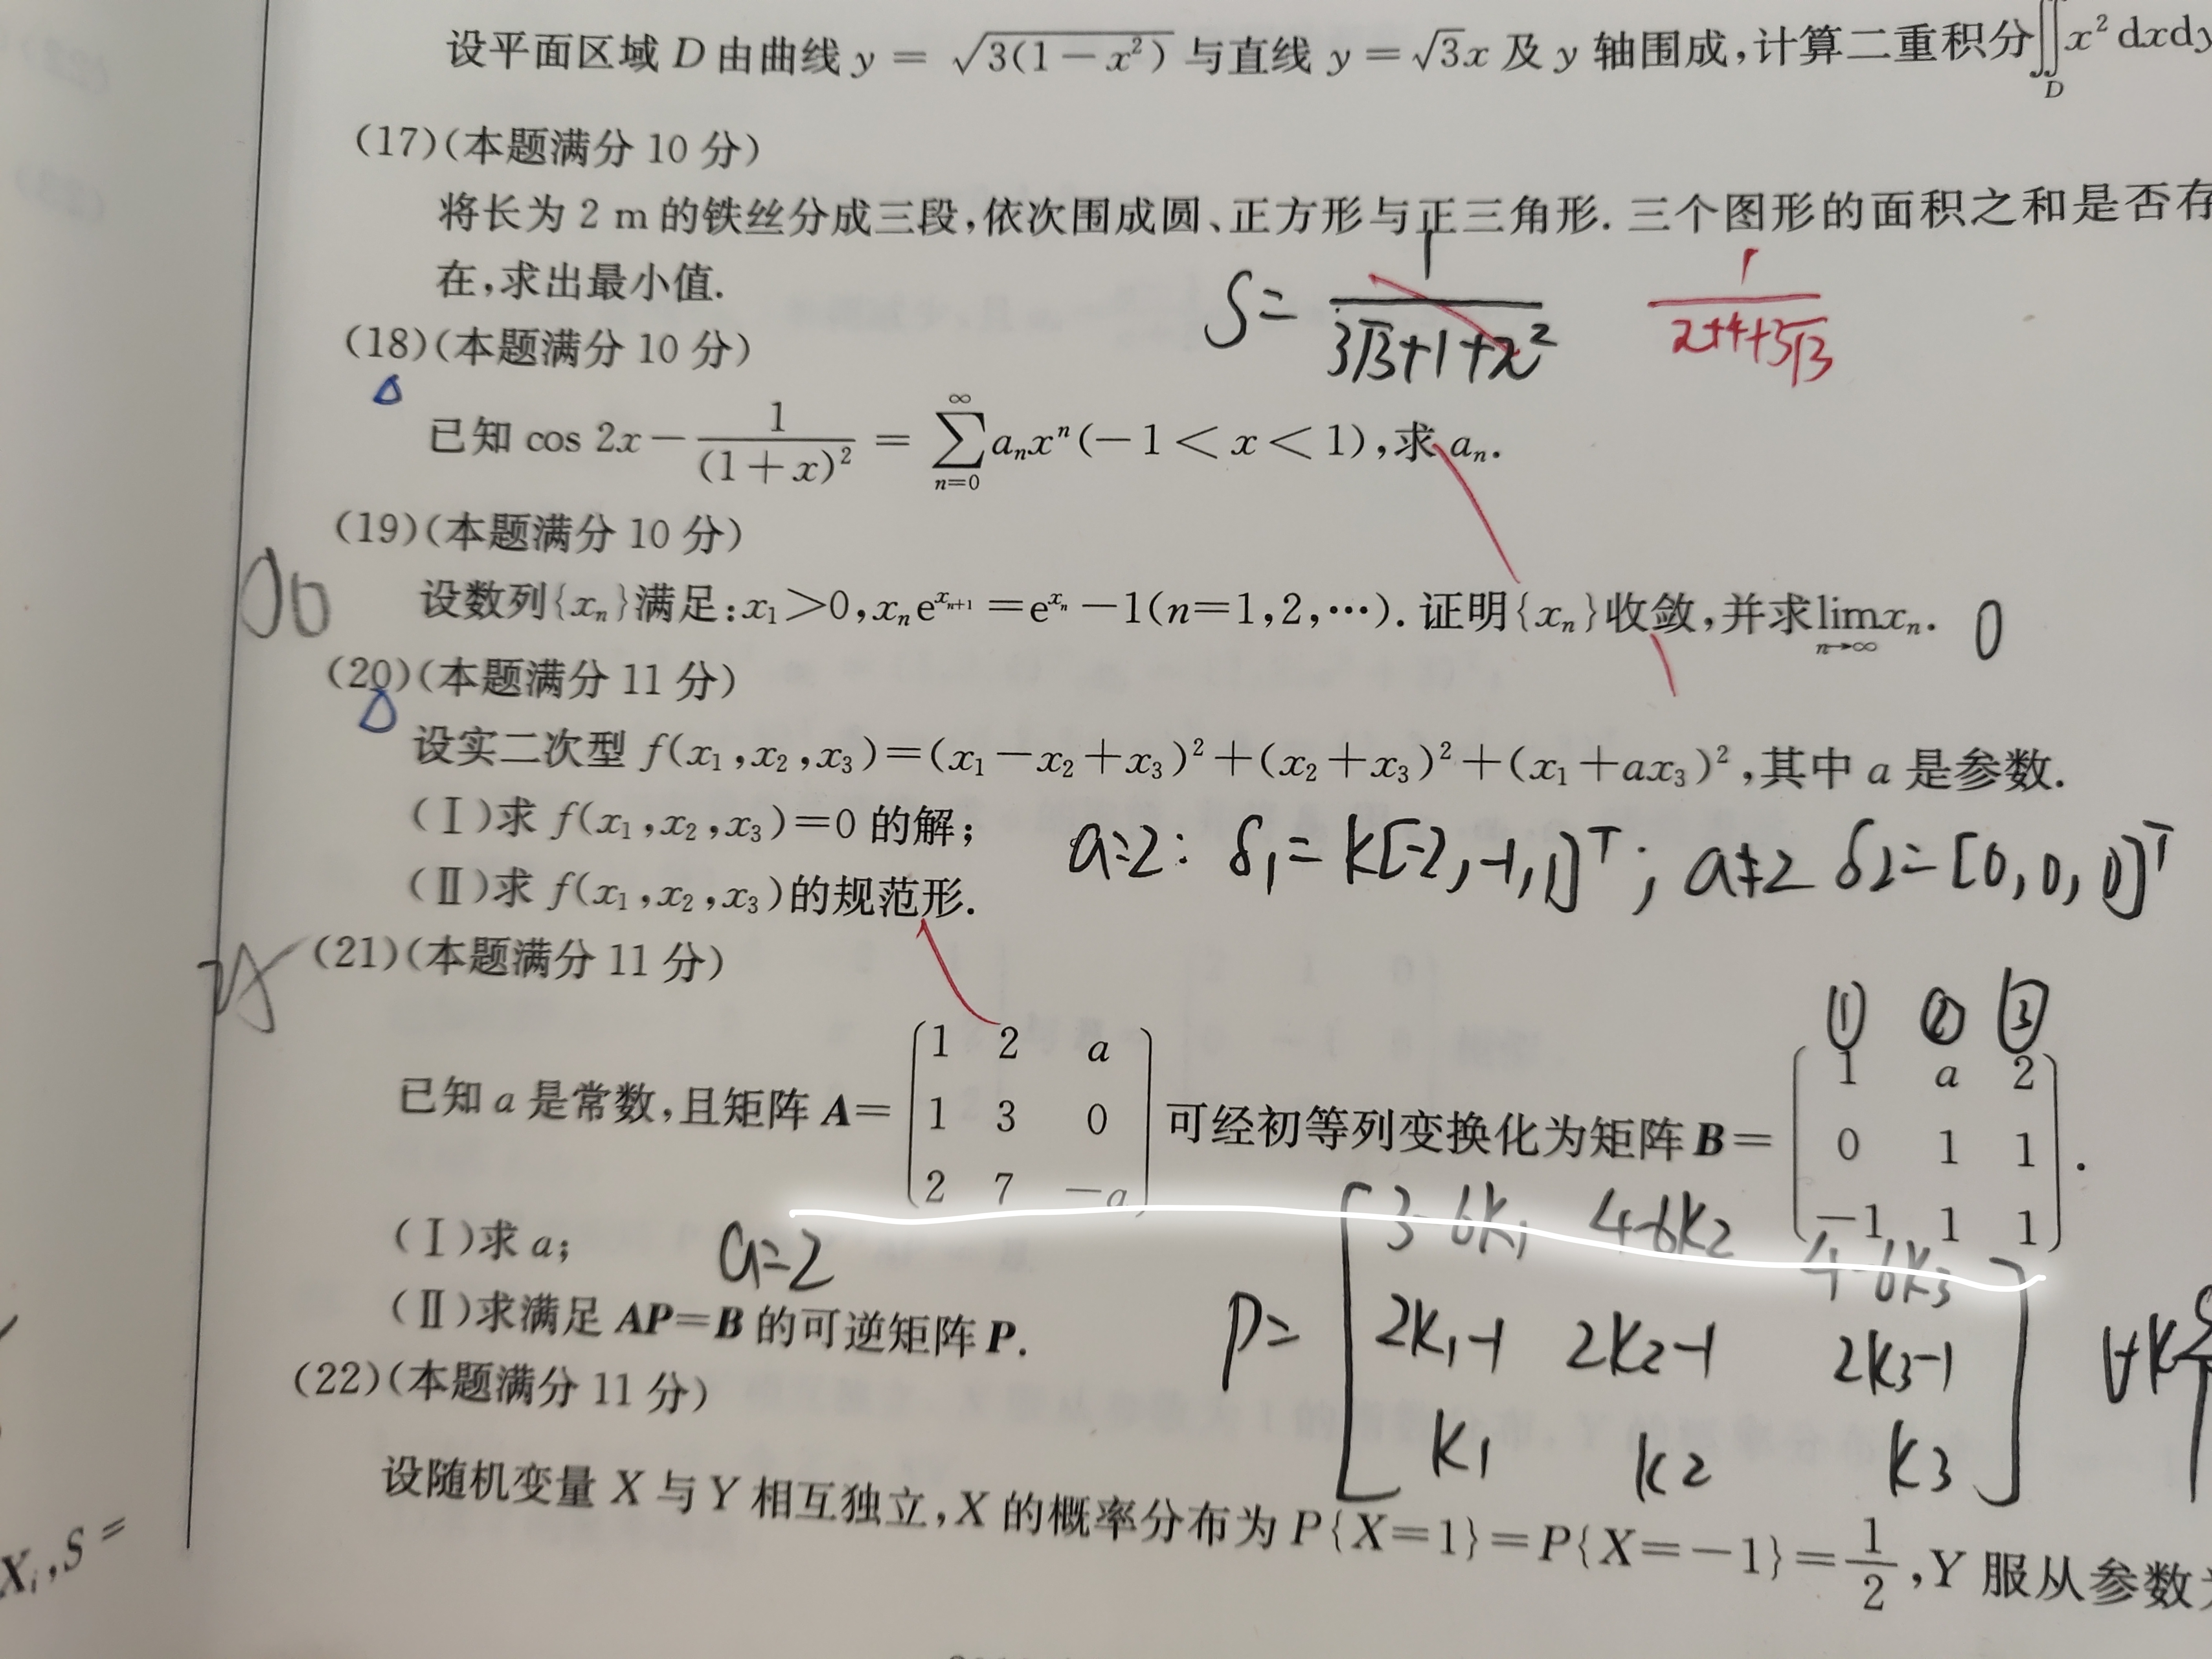 设平面区域 D 由曲线 y = √(3(1−x²)) 与直线 y=√3x 及 y 轴围成,计算二重积分∬_D x² dxdy
(17)(本题满分 10 分)
将长为 2 m 的铁丝分成三段,依次围成圆、正方形与正三角形. 三个图形的面积之和是否存
在,求出最小值.
S= 1/(3√3+1+π²)
1/(π+4+3√3)
(18)(本题满分 10 分)
已知 cos 2x − 1/(1+x)² = ∑_{n=0}^{∞} aₙxⁿ(−1<x<1),求 aₙ.
(19)(本题满分 10 分)
设数列{xₙ}满足:x₁>0,xₙe^{xₙ₊₁}=e^{xₙ}−1(n=1,2,⋯). 证明{xₙ}收敛,并求lim_{n→∞}xₙ. 0
(20)(本题满分 11 分)
设实二次型 f(x₁,x₂,x₃)=(x₁−x₂+x₃)²+(x₂+x₃)²+(x₁+ax₃)²,其中 a 是参数.
(Ⅰ)求 f(x₁,x₂,x₃)=0 的解;
a=2: δ₁=k[-2,-1,1]ᵀ; a≠2 δ2=[0,0,0]ᵀ
(Ⅱ)求 f(x₁,x₂,x₃)的规范形.
(21)(本题满分 11 分)
① ② ③
已知 a 是常数,且矩阵 A= (1 2 a; 1 3 0; 2 7 −a) 可经初等列变换化为矩阵 B= (1 a 2; 0 1 1; −1 1 1).
(Ⅰ)求 a; a=2
(Ⅱ)求满足 AP=B 的可逆矩阵 P.
P= [3-6k₁ 4-6k₂ 4-6k₃; 2k₁-1 2k₂-1 2k₃-1; k₁ k₂ k₃]
(22)(本题满分 11 分)
设随机变量 X 与 Y 相互独立,X 的概率分布为 P{X=1}=P{X=−1}=1/2,Y 服从参数
Xᵢ,S=